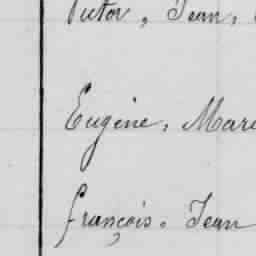 Victor, Jean,
Eugène, Mari
François, Jean